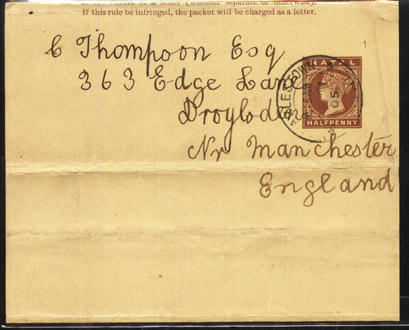 of the nature of a letter (whether separate or otherwise).
If this rule be infringed, the packet will be charged as a letter.
C Thompson Esq
363 Edge Lane
Droylsden
Nr Manchester
England
NATAL
HALFPENNY
05